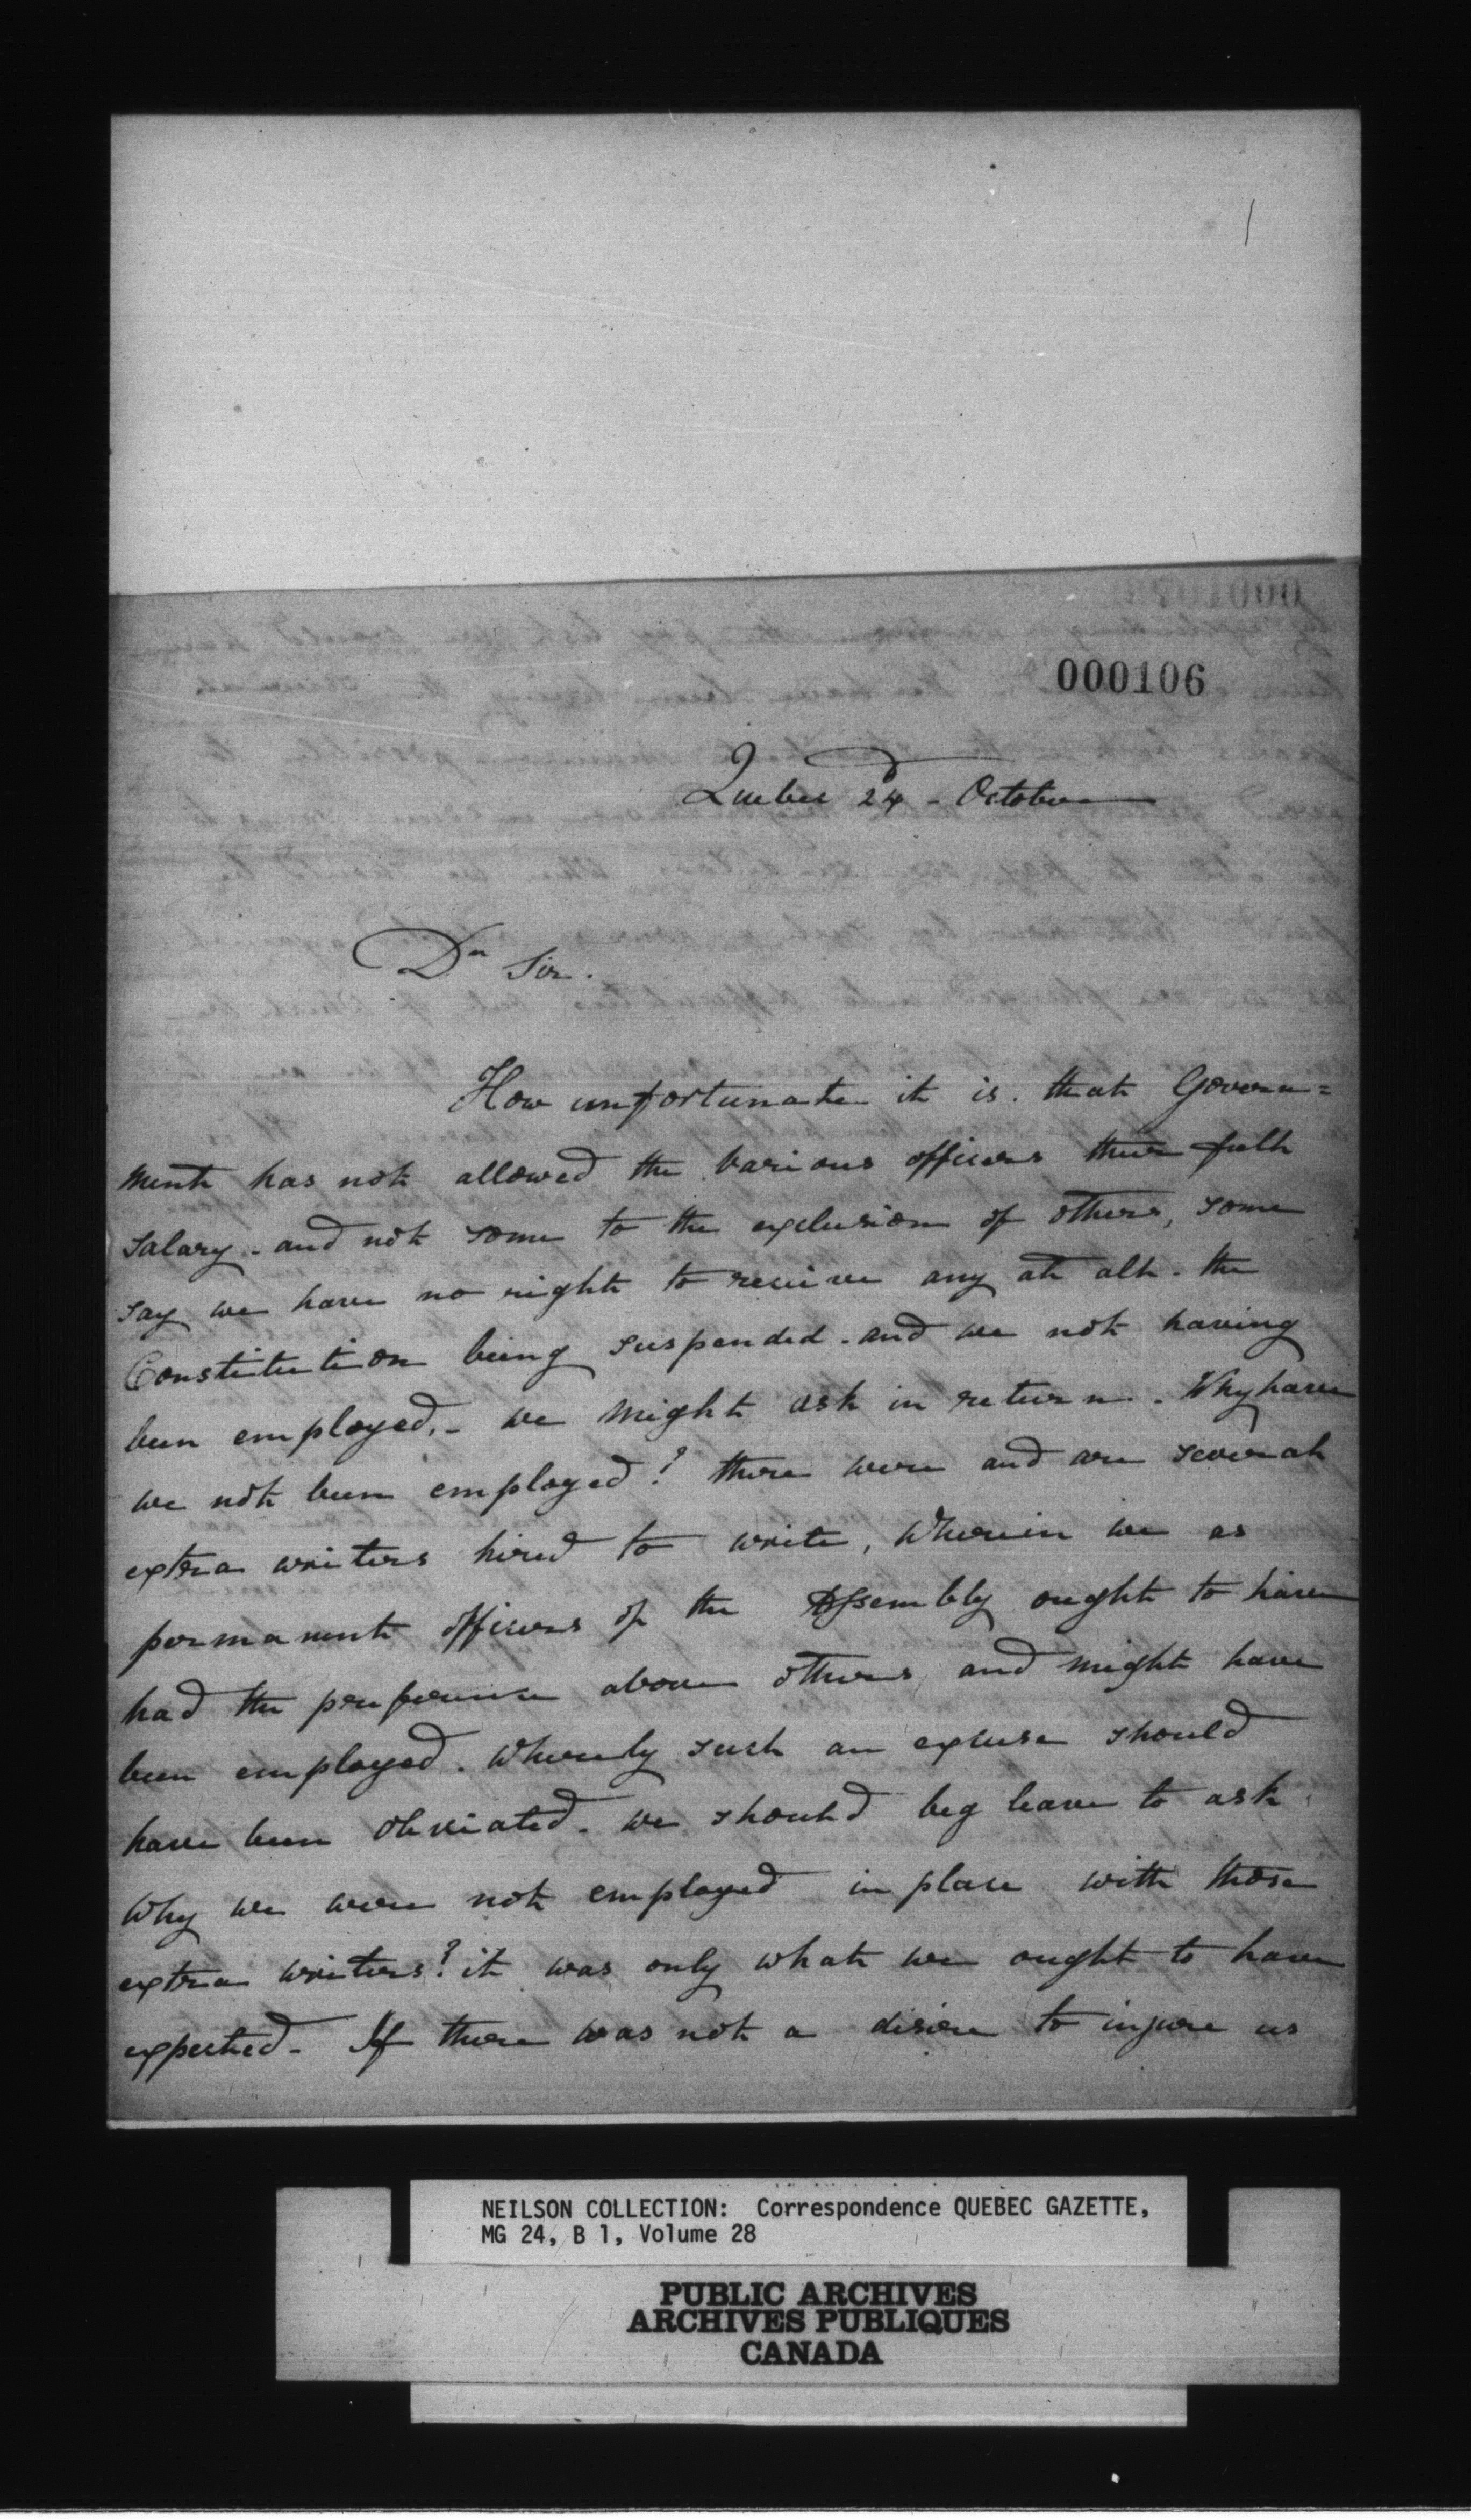 000106
Quebec 24 - October
Dr Sir.
How unfortunate it is. that Govern=
ment has not allowed the various officers their full
salary - and not some to the exclusion of others, some
say we have no right to receive any at all - the
Constitution being suspended - and we not having
been employed, - we might ask in return. Why have
we not been employed? there were and are several
extra writers hired to write, wherein we as
permanent officers of the Assembly ought to have
had the preference above others, and might have
been employed. whereby such an excuse should
have been obviated. we should beg leave to ask
why we were not employed in place with those
extra writers? it was only what we ought to have
expected - If there was not a desire to injure us
NEILSON COLLECTION: Correspondence QUEBEC GAZETTE,
MG 24, B 1, Volume 28
PUBLIC ARCHIVES
ARCHIVES PUBLIQUES
CANADA